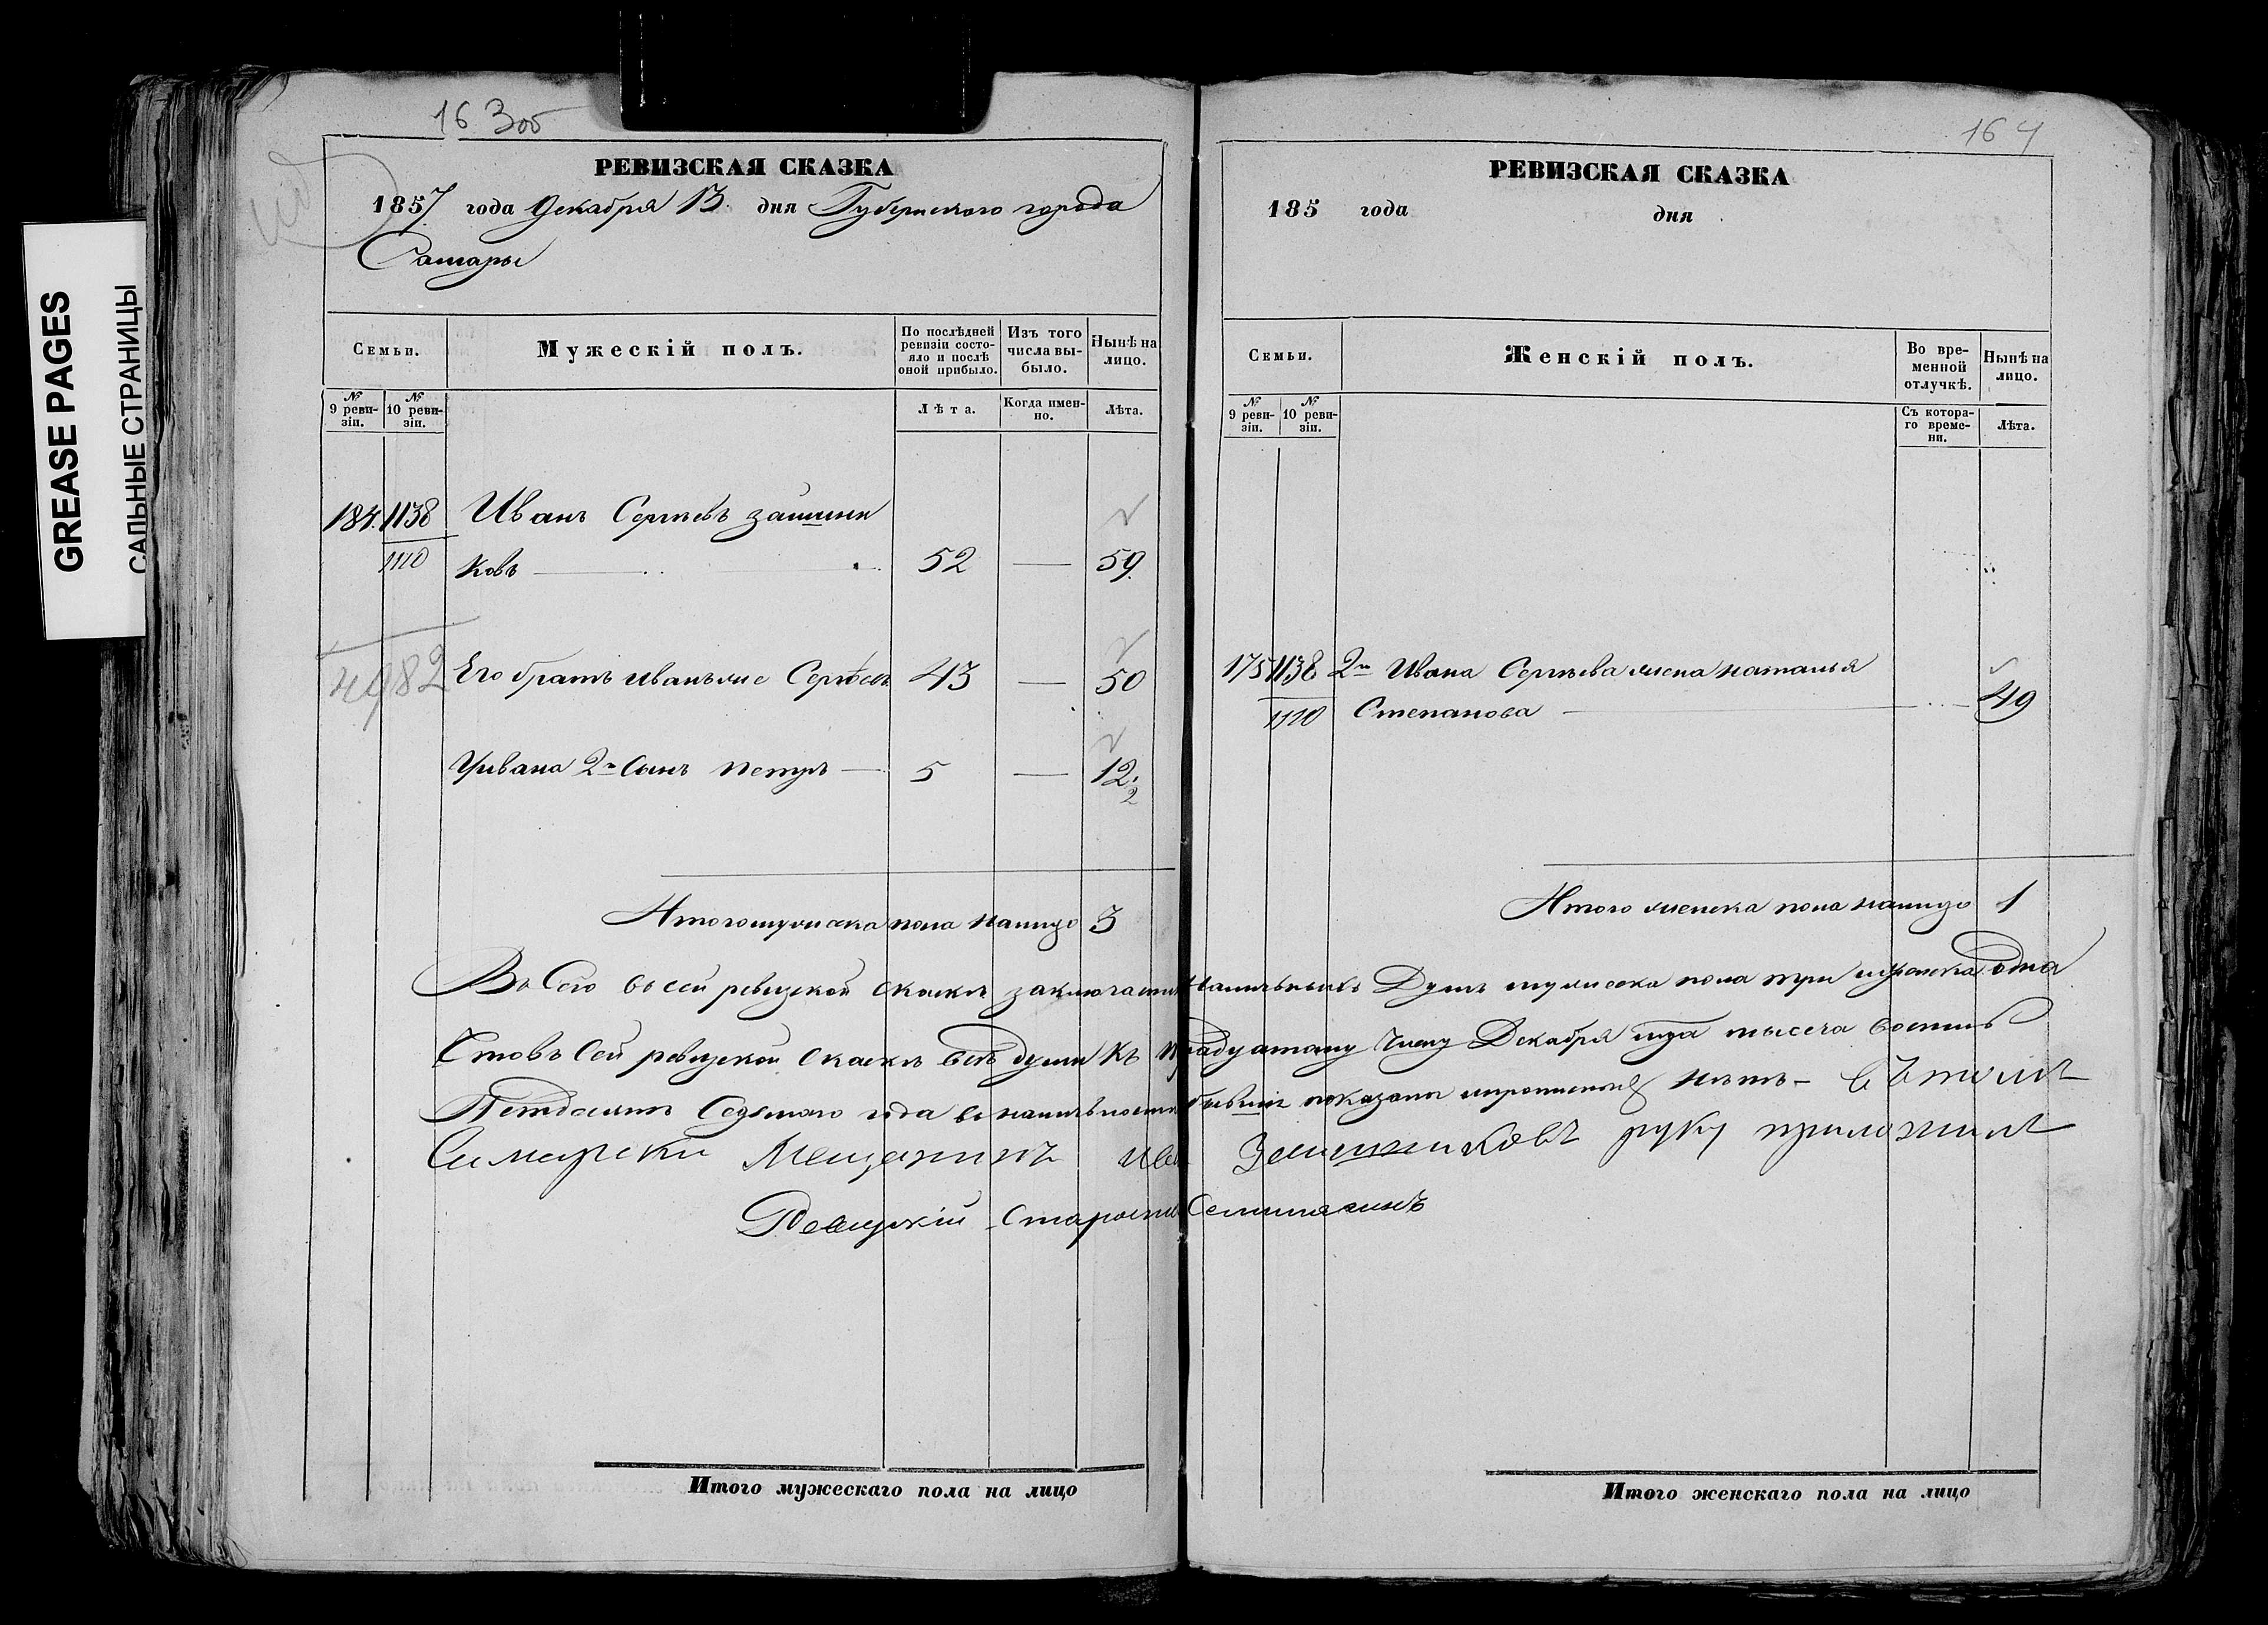 GREASE PAGES
САЛЬНЫЕ СТРАНИЦЫ
163об
РЕВИЗСКАЯ СКАЗКА
1857 года Декабря 13 дня Губернского города
Самары
Семьи.
Мужескій полъ.
По послѣдней ревизіи состояло и послѣ оной прибыло.
Изъ того числа выбыло.
Нынѣ на лицо.
№ 9 ревизіи.
№ 10 ревизіи.
Лѣта.
Когда именно.
Лѣта.
184. 1138 Иванъ Сергѣевъ
1120 ковъ — 52 — 59.
4982
Его братъ Иванъ же Сергѣевъ 43 — 50
У Ивана 2го Сынъ Петръ — 5 — 12.
2
Итого мужеска пола налицо 3
164
РЕВИЗСКАЯ СКАЗКА
185 года дня
Семьи.
Женскій полъ.
Во временной отлучкѣ.
Нынѣ на лицо.
№ 9 ревизіи.
№ 10 ревизіи.
Съ котораго времени.
Лѣта.
175 1138 2го Ивана Сергѣева жена Наталья
1120 Степанова — 49
Итого женска пола налицо 1
Всего въ сей ревизской скаскѣ заключается наличныхъ Душъ мужеска пола три женска одна
Что въ Сей ревизской Скаскѣ всѣ души къ числу Декабря тысеча восемь
Петдесятъ Седьмого года въ наличности бывшіе показаны и прописной нѣтъ — въ томъ
Самарски Мещенинъ Иван руку приложилъ
Ревизскій Староста
Итого мужескаго пола на лицо
Итого женскаго пола на лицо